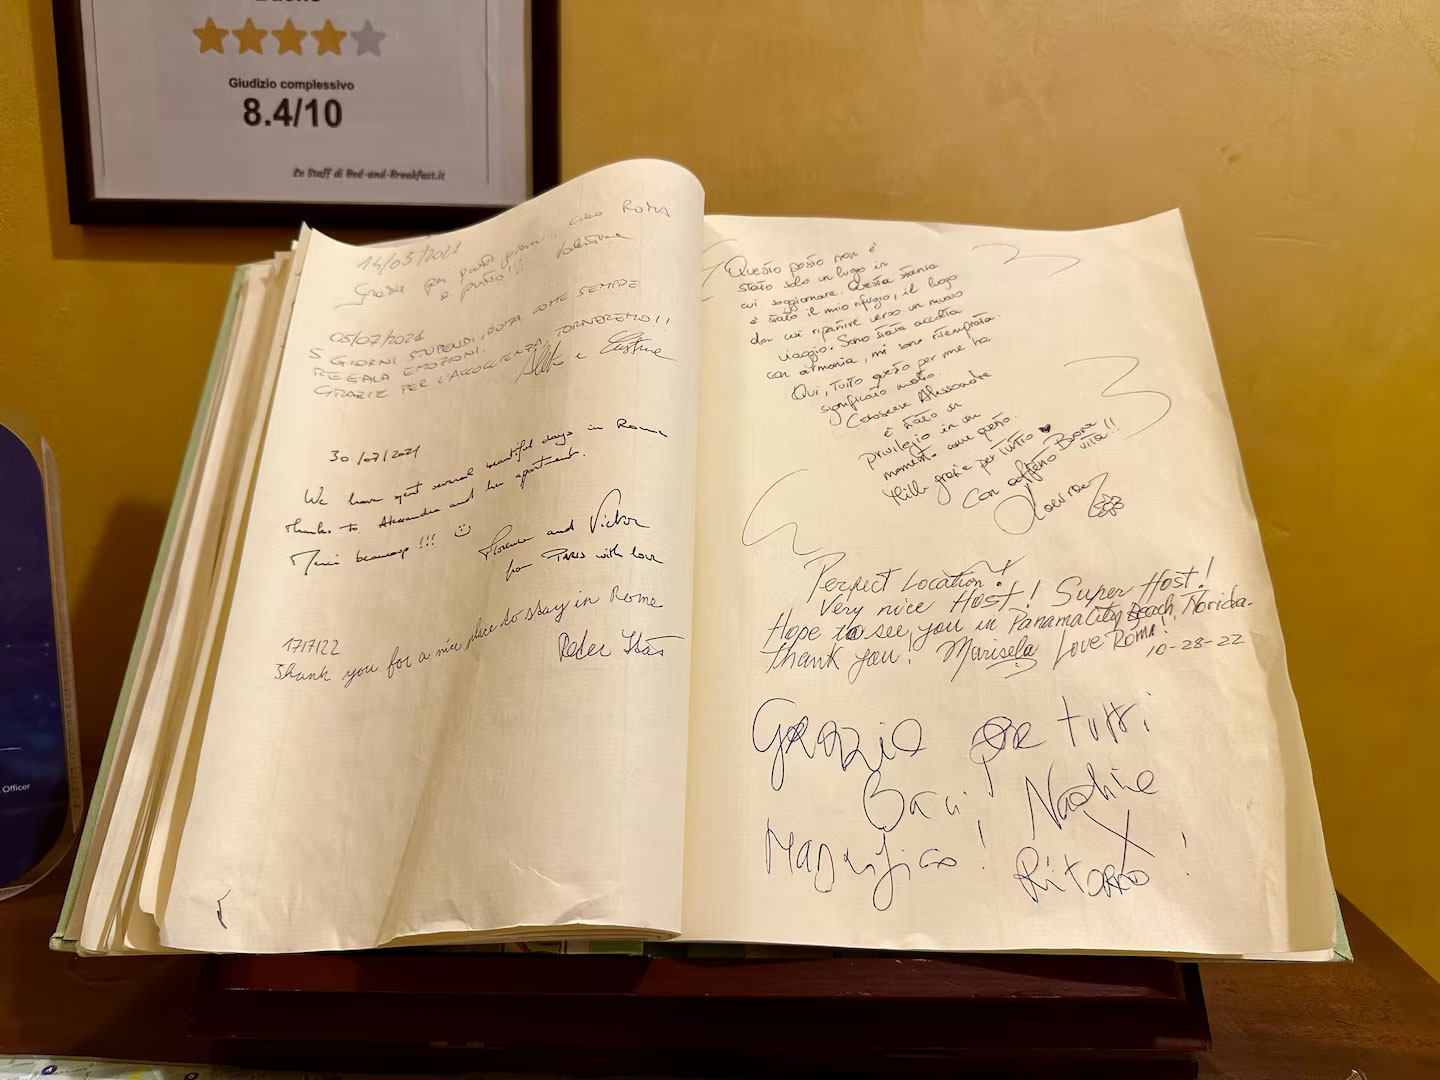 Giudizio complessivo
8.4/10
Lo Staff di Bed-and-Breakfast.it
Officer
14/05/2021
Grazie per questi giorni ROMA
e presto!!! Valentina
05/07/2021
5 GIORNI STUPENDI, ROMA COME SEMPRE
REGALA EMOZIONI.
GRAZIE PER L'ACCOGLIENZA, TORNEREMO!!
e
30/07/2021
We have spent several beautiful days in Rome
thanks to Alexandra and her apartment.
Merci beaucoup !!!
Florence and Victor
from PARIS with love
17/7/22
Thank you for a nice place to stay in Rome
Peder
Questo posto non è
stato solo un luogo in
cui soggiornare. Questa stanza
è stato il mio rifugio, il luogo
da cui ripartire verso un nuovo
viaggio. Sono stata accolta
con armonia, mi sono ritemprata.
Qui, tutto questo per me ha
significato molto.
Conoscere Alessandra
è stato un
privilegio in un
momento come questo.
Mille grazie per tutto ♥
con affetto Buona
vita!!
Perfect Location!
Very nice Host! Super Host!
Hope to see you in Panama City Beach Florida.
Thank you! Marisela Love Roma!
10-28-22
Grazie per tutti
Baci, Nadine
X
Magnifico! Ritorno!